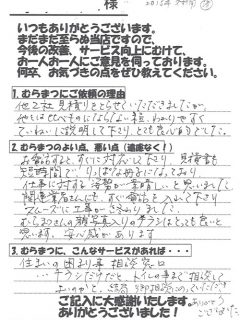 様
いつもありがとうございます。
まだまだ至らぬ当店ですので、
今後の改善、サービス向上にむけて、
お一人お一人にご意見を伺っております。
何卒、お気づきの点をぜひ教えてください。
1. むらまつにご依頼の理由
他2社見積りをとらせていただきましたが、
他とは比べものにならない程、わかりやすく
ていねいに説明して下さり、とても良い
2. むらまつのよい点、悪い点（遠慮なく！）
お電話すると、すぐに対応して下さり、見積書も
短時間で、りっぱな冊子になっており、
仕事に対する姿勢が素晴しいと思いました。
関連業者さんにも、すぐ電話を入れて下さり
スムーズに工事が終わりました。
むらまつさんの顔写真入りのチラシはとても良いと
思います。安心感があります
3. むらまつに、こんなサービスがあれば・・・
住まいの困り事相談窓口
チラシだけだと、トイレの事まで相談して
よいのかと、
ご記入に大感謝いたします。
ありがとうございました！
ありがとう
ございました